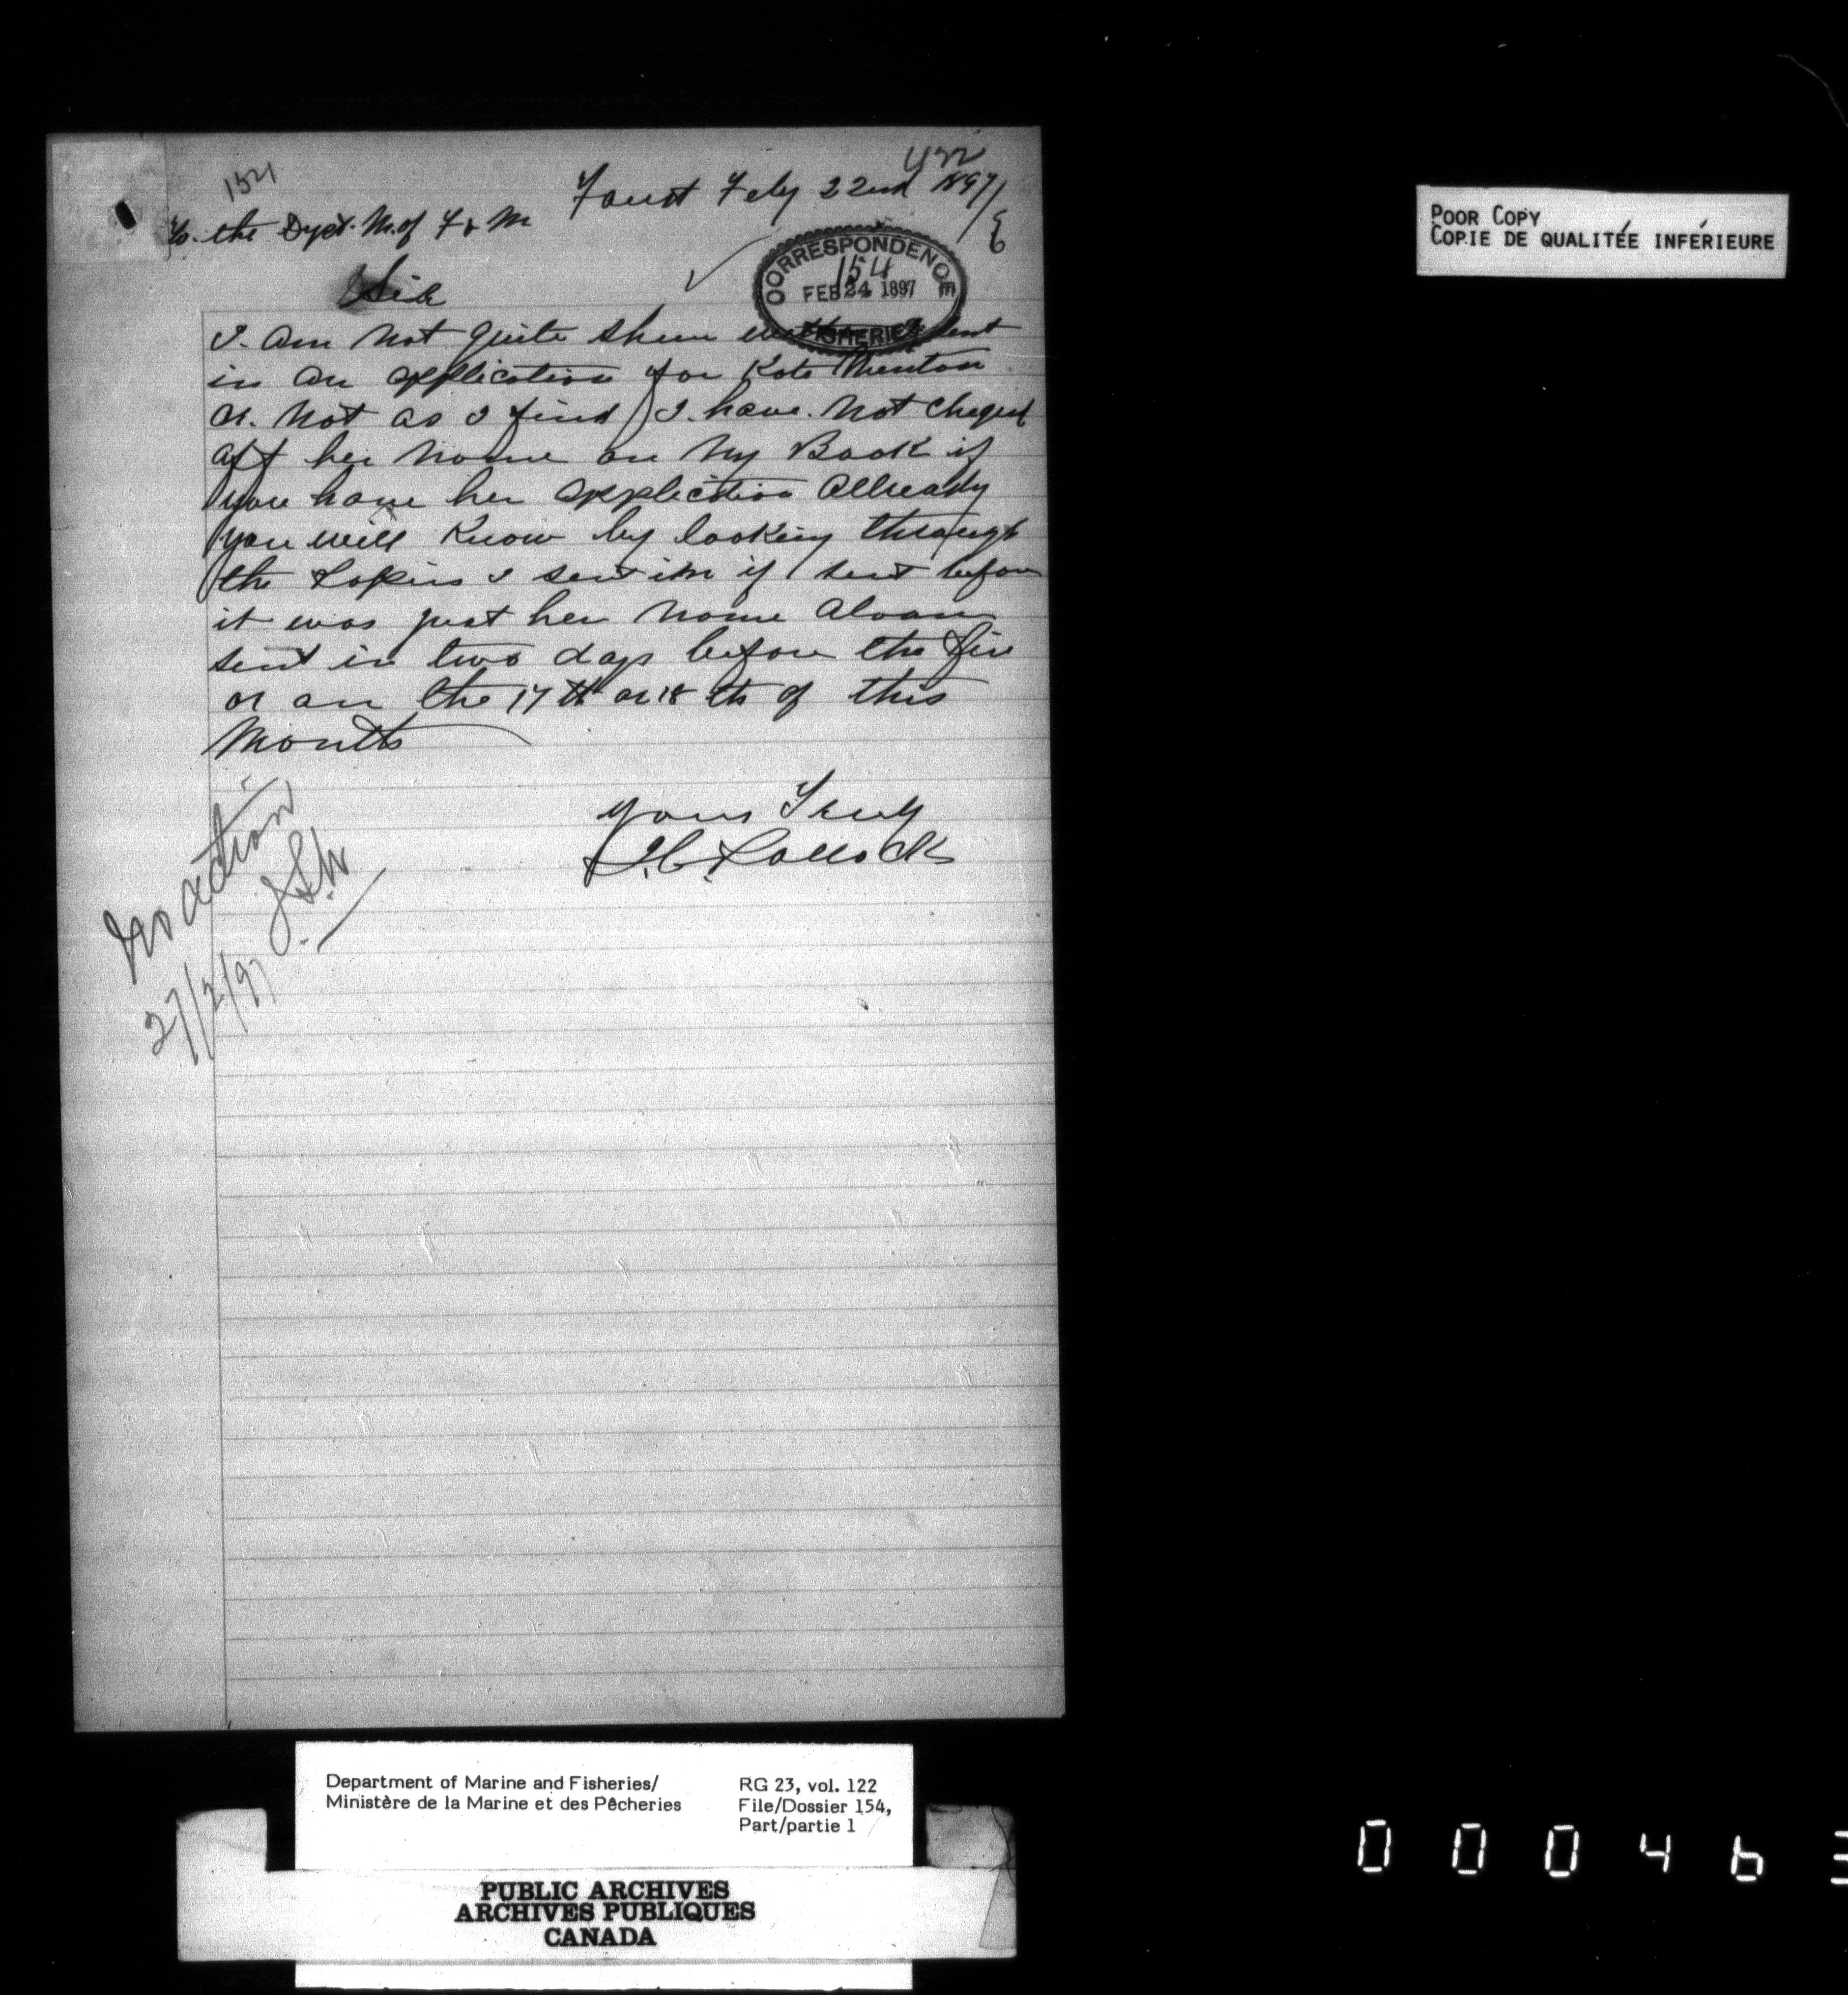 154
422
Faust Feby 22nd 1897
To. the Dept. M. of F & M
CORRESPONDENCE
154
FEB 24 1897
FISHERIES
Sir
I. am not quite shure sent
in an application for Kate
or. not as I find I. have. not cheqed
off her name on my Book if
you have her application allready
you will know by looking through
the I sent in if sent before
it was just her name aloan
sent in two days before the fire
or on the 17th or 18 th of this
Month
yours Truly
Pollock
no action
27/2/97
POOR COPY
COPIE DE QUALITÉE INFÉRIEURE
Department of Marine and Fisheries/
Ministère de la Marine et des Pêcheries
RG 23, vol. 122
File/Dossier 154,
Part/partie 1
PUBLIC ARCHIVES
ARCHIVES PUBLIQUES
CANADA
0 0 0 4 6 3